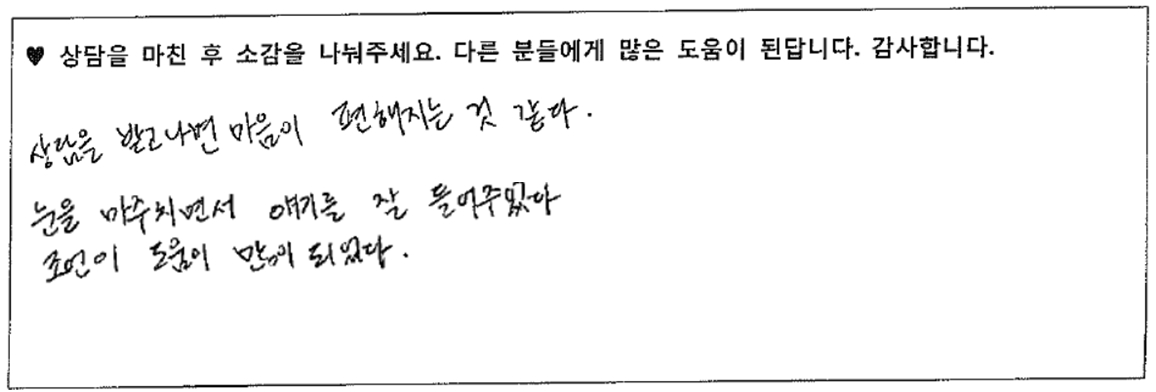 ♥ 상담을 마친 후 소감을 나눠주세요. 다른 분들에게 많은 도움이 된답니다. 감사합니다.
상담을 받고나면 마음이 편해지는 것 같다.
눈을 마주치면서 얘기를 잘 들어주었다
조언이 도움이 많이 되었다.